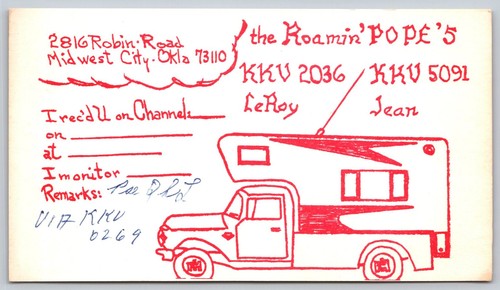 2816 Robin Road
Midwest City Okla 73110
the Roamin' POPE'S
KKV 2036
KKV 5091
LeRoy
Jean
I rec'd U on Channel
on
at
I monitor
Remarks: Pse QSL
VIA KKV
0269